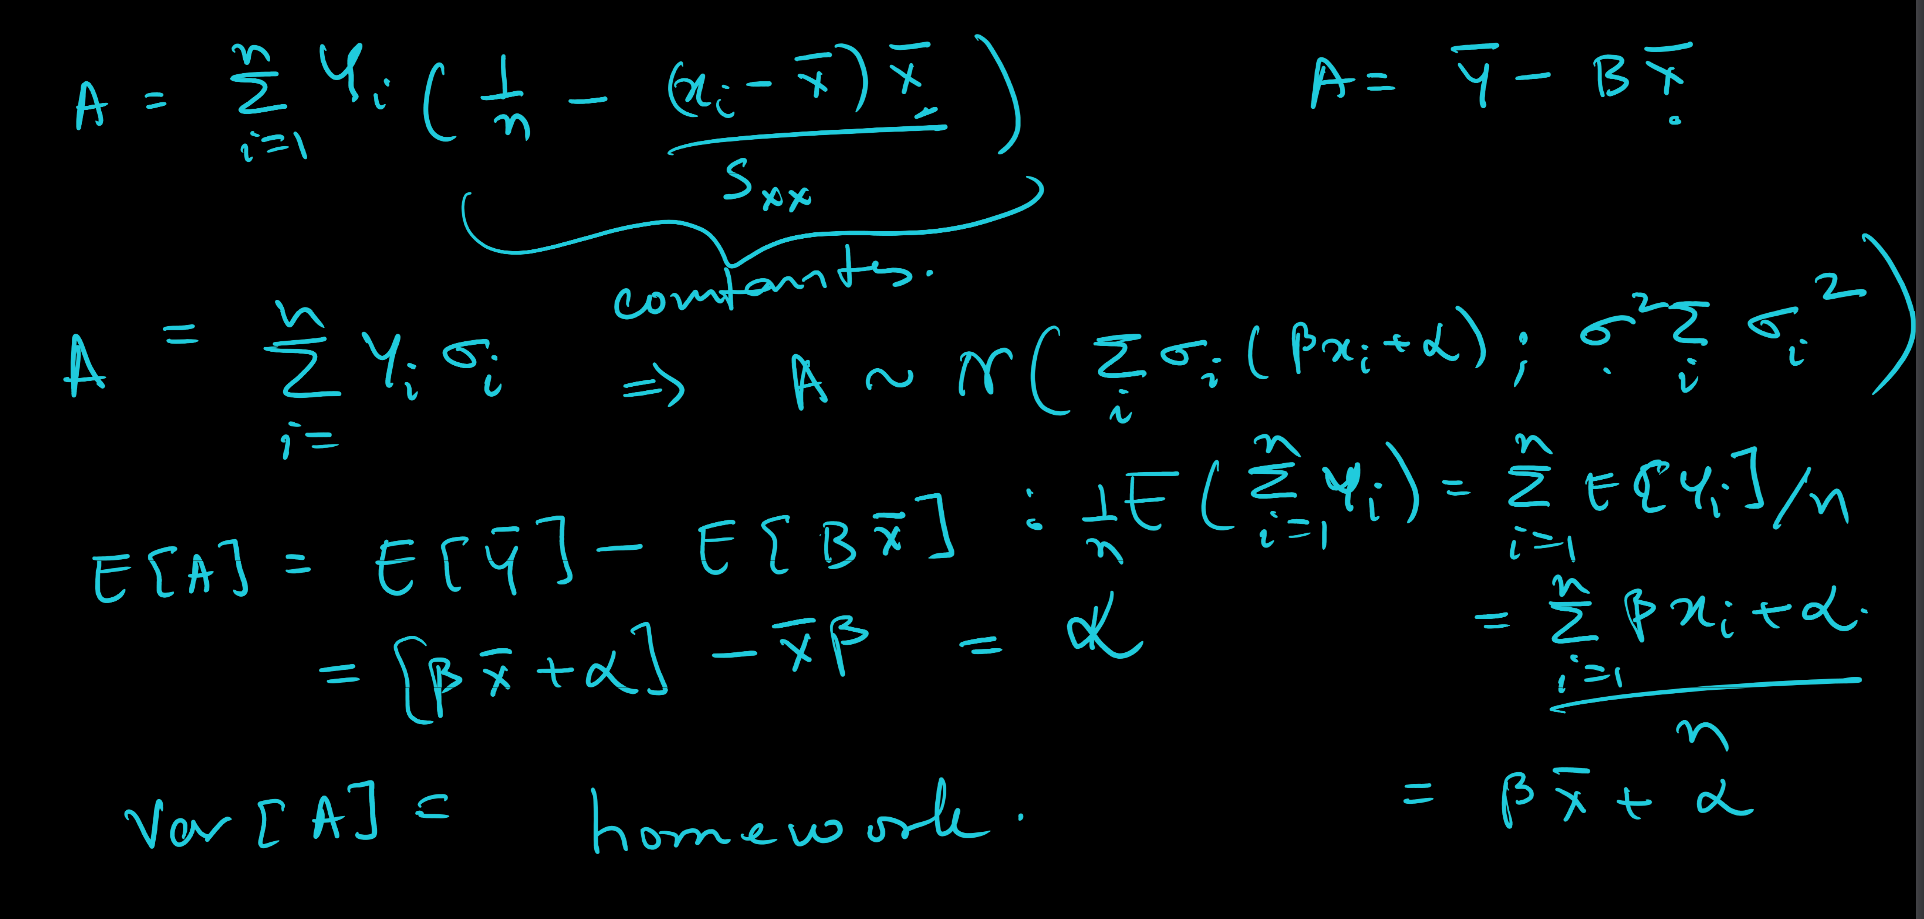 A = ∑_{i=1}^{n} Y_i ( 1/n − (x_i − x̄) x̄ / S_xx )
A = Ȳ − B x̄
constants.
A = ∑_{i=}^{n} Y_i σ_i ⇒ A ~ N( ∑_i σ_i (βx_i + α) ; σ² ∑_i σ_i² )
E[A] = E[Ȳ] − E[B x̄] : 1/n E( ∑_{i=1}^{n} Y_i ) = ∑_{i=1}^{n} E[Y_i]/n
= [β x̄ + α] − x̄ β = α
= ∑_{i=1}^{n} βx_i + α. / n
Var[A] = homework.
= β x̄ + α